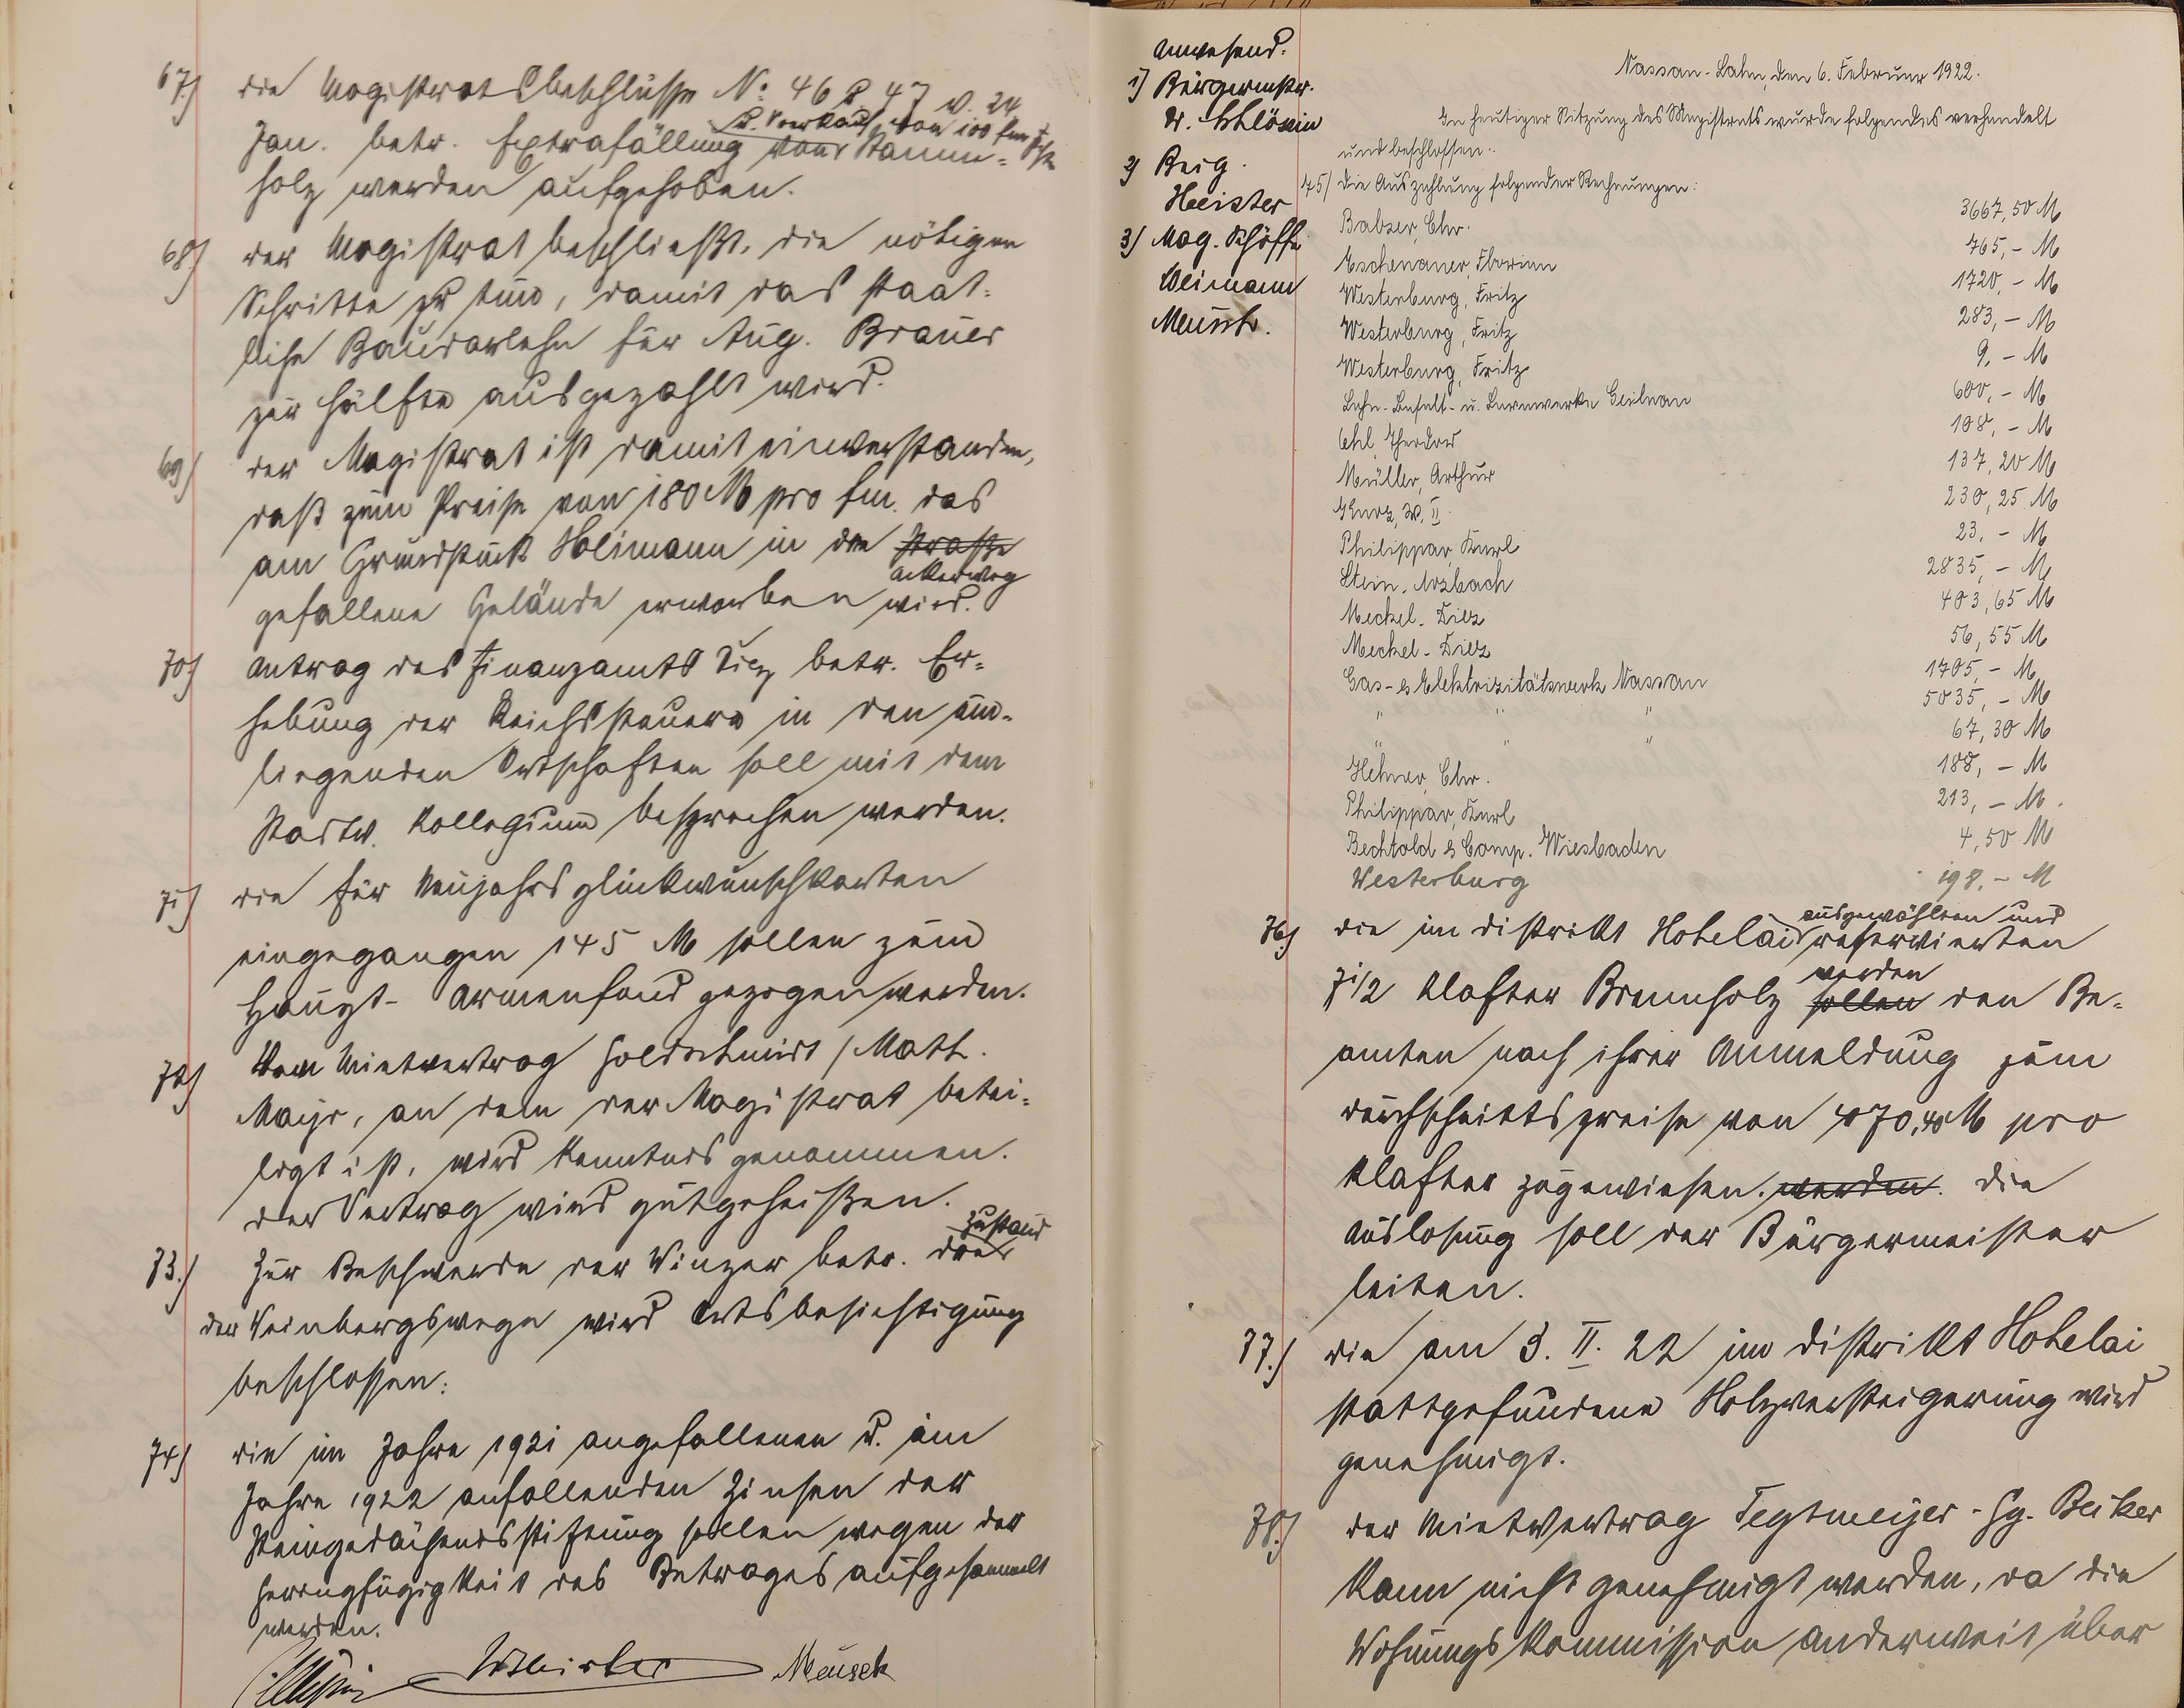 67.) die Magistratsbeschlüsse No. 46 & 47 v. 24
Jan. betr. Extrafällung u. Verkauf von 100 fm Stamm-
holz werden aufgehoben.
68.) der Magistrat beschließt, die nötigen
Schritte zu tun, damit das staat-
liche Baudarlehn für Aug. Brauer
zur Hälfte ausgezahlt wird.
69.) der Magistrat ist damit einverstanden,
daß zum Preise von 180 M pro fm. das
am Grundstück Heimann in den Straße
Ackerweg
gefallene Gelände erworben wird.
70.) Antrag des Finanzamts Diez betr. Er-
hebung der Reichssteuern in den um-
liegenden Ortschaften soll mit dem
Stadtv. Kollegium besprochen werden.
71.) die für Neujahrsglückwunschkarten
eingegangen 145 M sollen zum
Haupt-Armenfond gezogen werden.
72.) Vom Mietvertrag Goldschmidt / Math.
Mayr, an dem der Magistrat betei-
ligt ist, wird Kenntnis genommen.
der Vertrag wird gutgeheißen.
73.) Zur Beschwerde der Winzer betr. Zustand
der Weinbergswege wird Ortsbesichtigung
beschlossen.
74.) die im Jahre 1921 angefallenen u. im
Jahre 1922 anfallenden Zinsen der
Steingedächtnisstiftung sollen wegen der
Geringfügigkeit des Betrages aufgesammelt
werden.
Meusch
Anwesend:
1) Bürgermstr.
2) Beig.
3) Mag. Schöffe
Nassau-Lahn, den 6. Februar 1922.
In heutiger Sitzung des Magistrats wurde folgendes verhandelt
und beschlossen:
75/ die Auszahlung folgender Rechnungen:
Balzer, Chr. 3667,50 M
Eschenauer, Florian 765,- M
Westerburg, Fritz 1720,- M
Westerburg, Fritz 283,- M
Westerburg, Fritz 9,- M
Lahn-Basalt- u. Lavawerke Geilnau 600,- M
Ohl, Theodor 108,- M
Müller, Arthur 137,20 M
Kurz, W. II 230,25 M
Philippar, Karl 23,- M
Stein, Arzbach 2835,- M
Meckel-Diez 403,65 M
Meckel-Diez 56,55 M
Gas- & Elektrizitätswerk Nassau 1705,- M
" " " 5035,- M
" " " 67,30 M
Hehner, Chr. 188,- M
Philippar, Karl 213,- M.
Bechtold & Comp. Wiesbaden 4,50 M
Westerburg 198,- M
76.) die im Distrikt Hohelai ausgewählten und reservierten
71/2 Klafter Brennholz sollen werden den Be-
amten nach ihrer Anmeldung zum
Durchschnittspreise von 470,40 M pro
Klafter zugewiesen. werden. Die
Auslosung soll der Bürgermeister
leiten.
77.) die am 3. II. 22 im Distrikt Hohelai
stattgefundene Holzversteigerung wird
genehmigt.
78.) der Mietvertrag Tegtmeijer - Hg. Becker
kann nicht genehmigt werden, da die
Wohnungskommission anderweit über